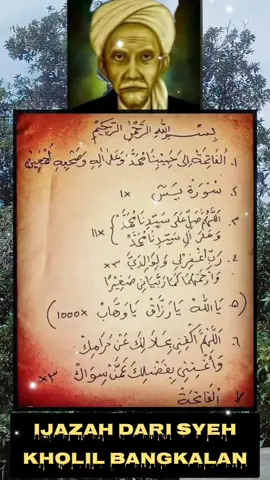 بِسْمِ اللهِ الرَّحْمٰنِ الرَّحِيْمِ
١. اَلْفَاتِحَة إِلَى حَبِيْبِنَا مُحَمَّدْ وَعَلَى اٰلِهِ وَصَحْبِهِ اَجْمَعِيْن
٢. سُوْرَةْ يٰسٓ ١x
٣. اَللّٰهُمَّ صَلِّ عَلَى سَيِّدِنَا مُحَمَّدْ
وَعَلَى اٰلِ سَيِّدِنَا مُحَمَّدْ } 11x
٤. رَبِّ اغْفِرْلِى وَلِوَالِدَيَّ ×٣
وَارْحَمْهُمَا كَمَا رَبَّيَانِى صَغِيْرًا
٥. يَا اللّٰهُ يَا رَزَّاقُ يَا وَهَّابُ (1000x)
٦. اَللّٰهُمَّ اكْفِنِى بِحَلَالِكَ عَنْ حَرَامِكَ
وَأَغْنِنِى بِفَضْلِكَ عَمَّنْ سِوَاكَ ×٣
٧. اَلْفَاتِحَة
IJAZAH DARI SYEH
KHOLIL BANGKALAN